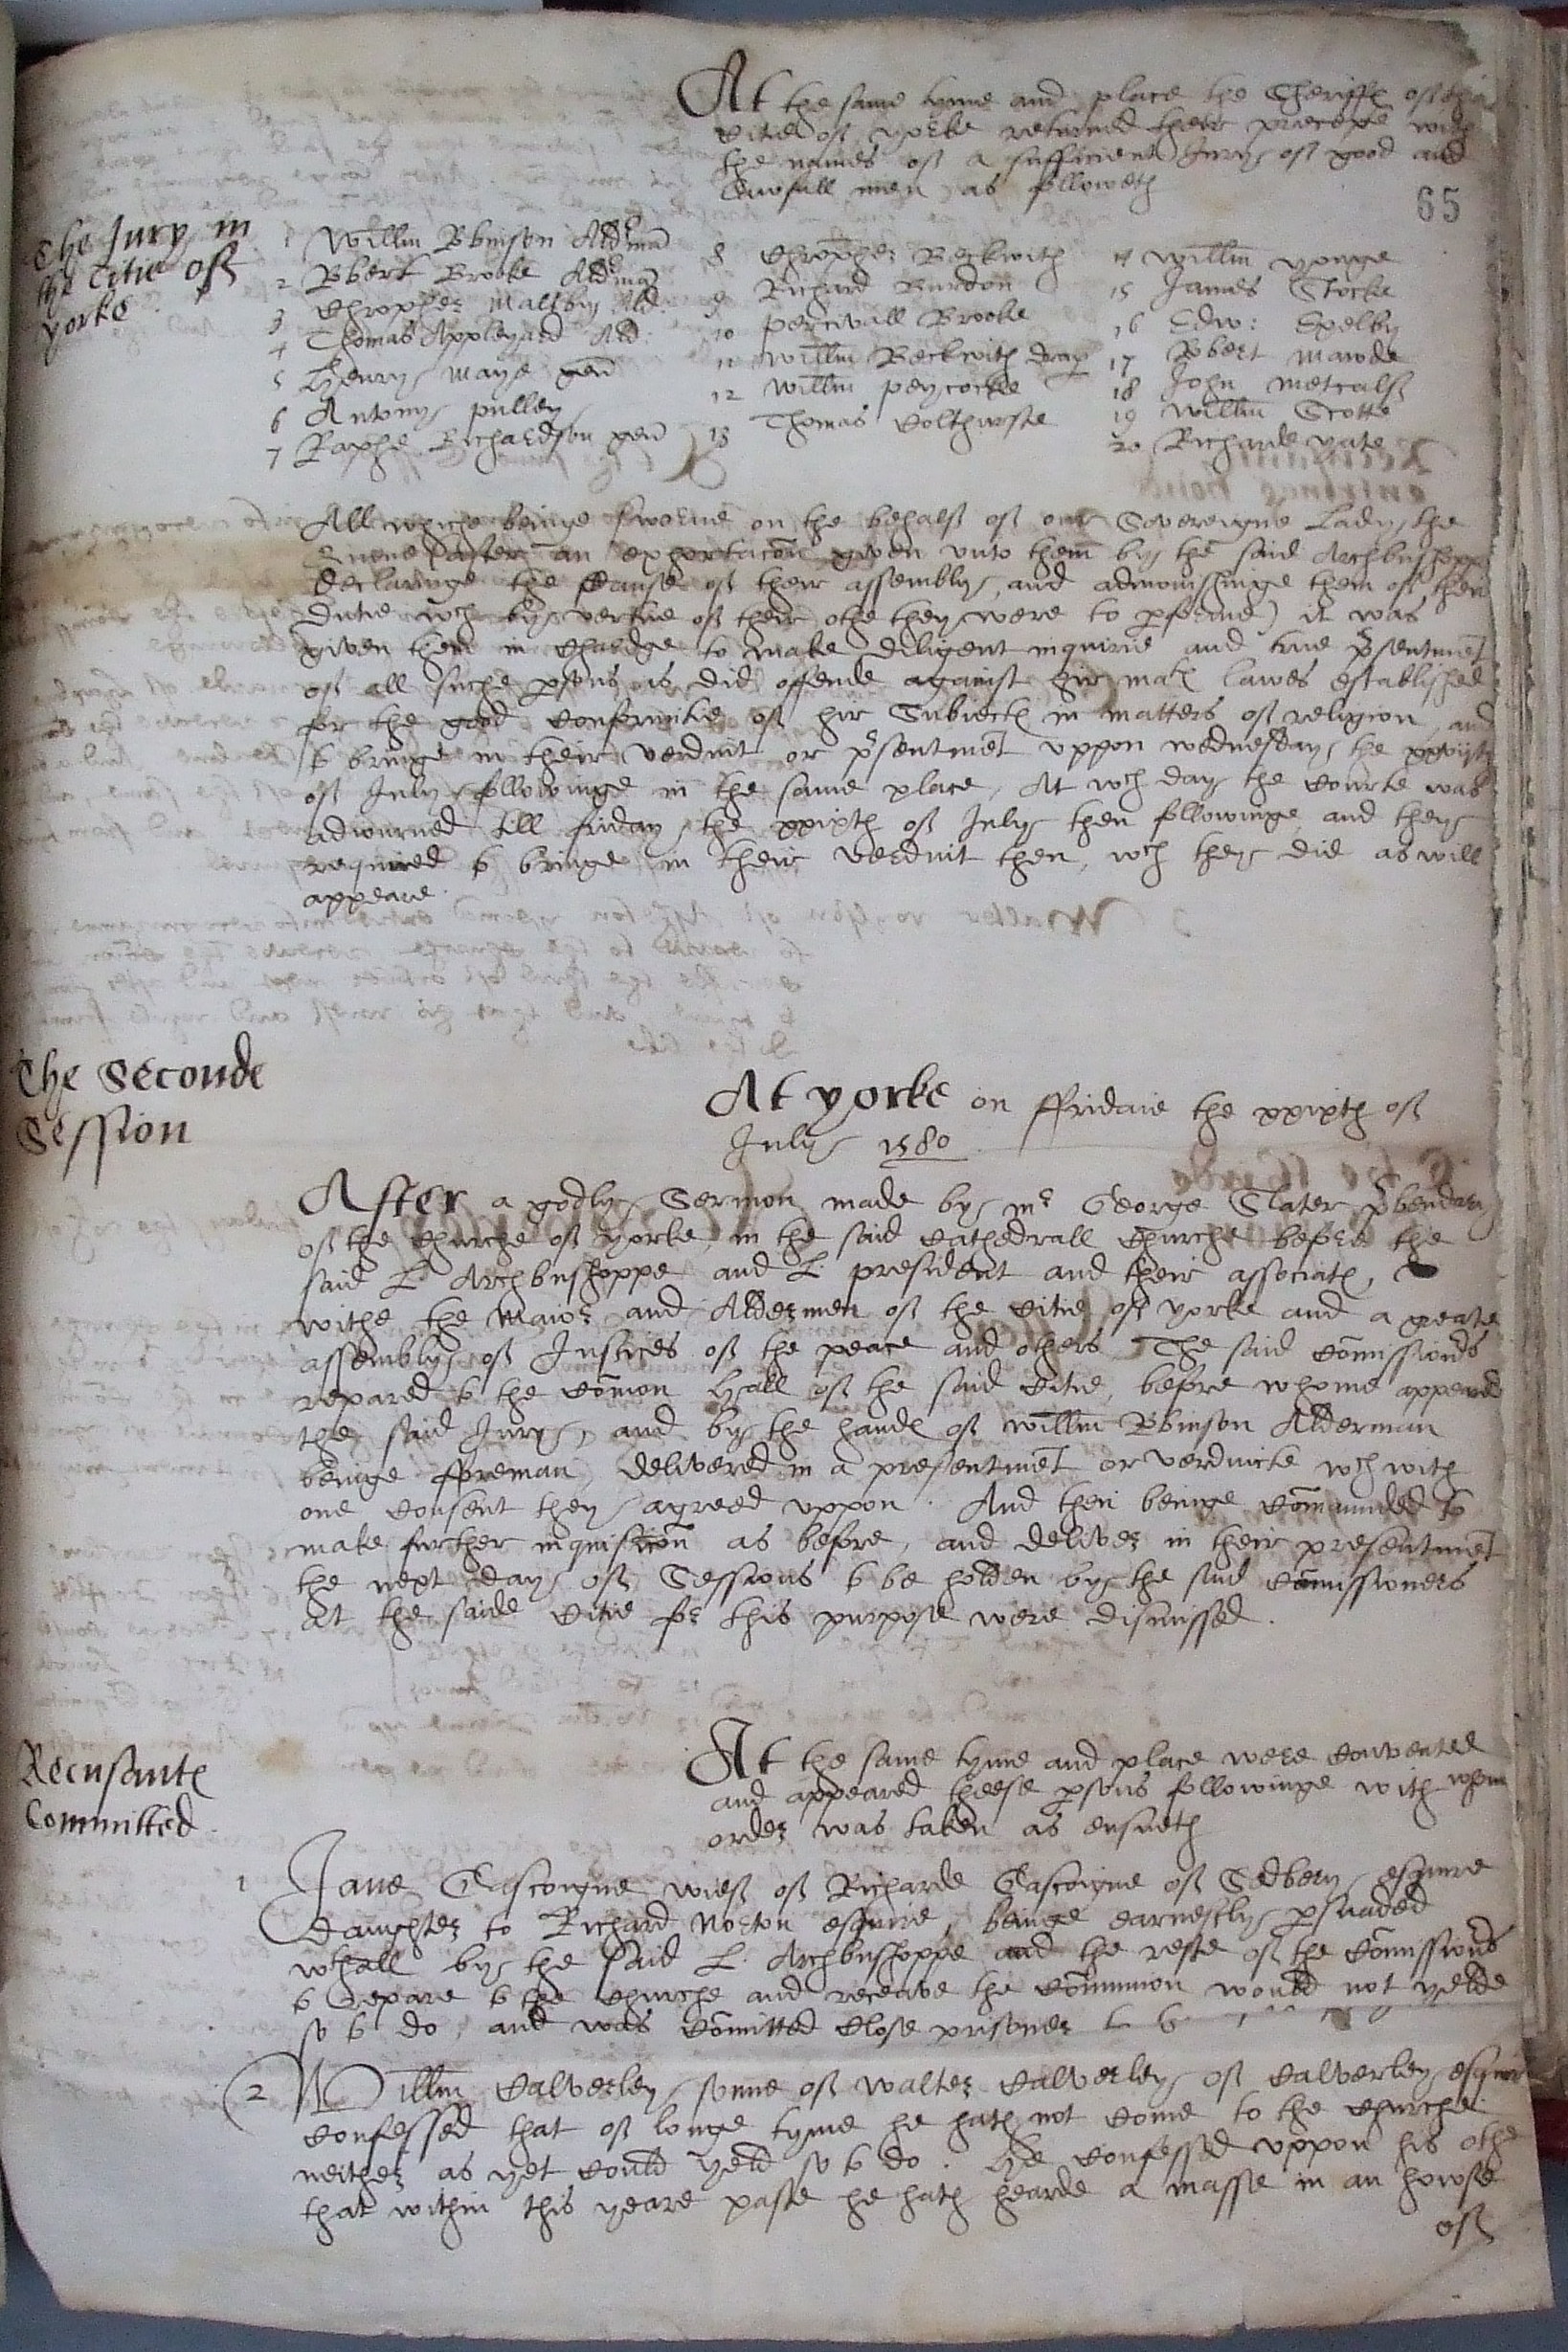 At the same tyme and place the Sheriffs of the
Citie of yorke retorned their precepte with
the names of a sufficient Jury of good and
Lawfull men as followeth
65
The Jury in
the Citie of
yorke
1 Willm Robinson Alderman
2 Robert Brooke Alderman
3 Chropher Maltby Ald:
4 Thomas Appleyard Ald:
5 Henry Maye gen
6 Antony pulley
7 Raphe Richardson gen
8 Chropher Beckwith
9 Richard Burdon
10 percivall Brooke
11 Willm Beckwith drap
12 willm peycocke
13 Thomas Colthirste
14 willm yonge
15 James Stocke
16 Edw: Exelby
17 Robert Mawde
18 John Metcalf
19 willm Scotte
20 Richarde yate
All whiche beinge sworne on the behalf of our Sovereigne Lady the
Quene (after an exhortacon given unto them by the said Archbushoppe
declaringe the Cause of their assembly, and admonishinge them of their
Dutie wch by vertue of their othe they were to pforme) it was
given them in Chardge to make diligent inquirie and true psentmet
of all suche psons as did offende against hir mats lawes established
for the good Conformitie of hir Subiects in matters of religion and
to bringe in their verduit or psentmet uppon wednesday the xxvijth
of July followinge in the same place, At wch day the Courte was
adiourned till friday the xxixth of July then followinge and they
required to bringe in their verduit then, wch they did as will
appeare.
The Seconde
Session
At yorke on ffridaie the xxixth of
July 1580
After a godly Sermon made by mr George Slater pbendary
of the Churche of yorke, in the said Cathedrall Churche before the
said L. Archbushoppe and L. president and their associats,
withe the Maior and Aldermen of the Citie of yorke and a greate
assembly of Justices of the peace and others The said Comissions
repared to the Comon Hall of the said Citie, before whome appeared
the said Jury, and by the hands of willm Robinson Alderman
beinge fforeman, delivered in a presentmet or verduicte wch with
one Consent they agreed uppon. And then beinge Comaunded to
make further inquisicon as before, and deliver in their presentmet
the next day of Sessions to be holden by the said Comissioners
at the saide Citie for this purpose were dismissed.
Recusants
Committed.
At the same tyme and place were Convented
and appeared theese psons followinge with whom
order was taken as ensueth
1 Jane Gascoigne wief of Richarde Gascoigne of Sedbery esquire
Daughter to Richard Norton esquire, beinge earnestly psuaded
wthall by the said L. Archbushoppe and the reste of the Comissions
to repare to the Churche and receave the Comunion would not yelde
so to do, and was Comitted Close prisoner
2 Willm Calverley sonne of walter Calverley of Calverley esquire
Confessed that of longe tyme he hath not Come to the Churche
neither as yet Could yeld so to do. He Confessed uppon his othe
that within this yeare paste he hath hearde a masse in an howse
of